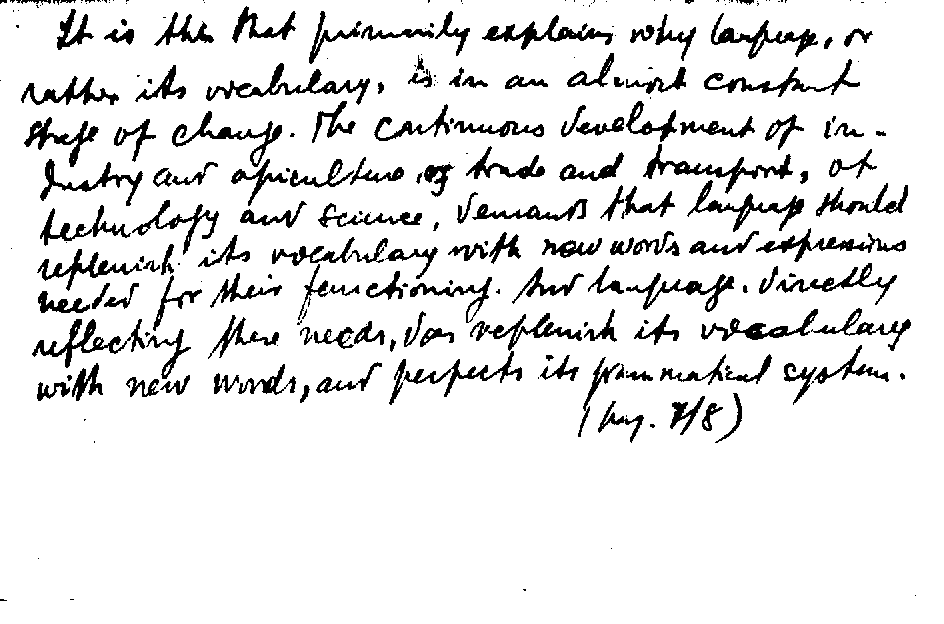 It is this that primarily explains why language, or
rather its vocabulary, is in an almost constant
state of change. The continuous development of in-
dustry and agriculture, of trade and transport, of
technology and science, demands that language should
replenish its vocabulary with new words and expressions
needed for their functioning. And language, directly
reflecting these needs, does replenish its vocabulary
with new words, and perfects its grammatical system.
(pag. 7/8)